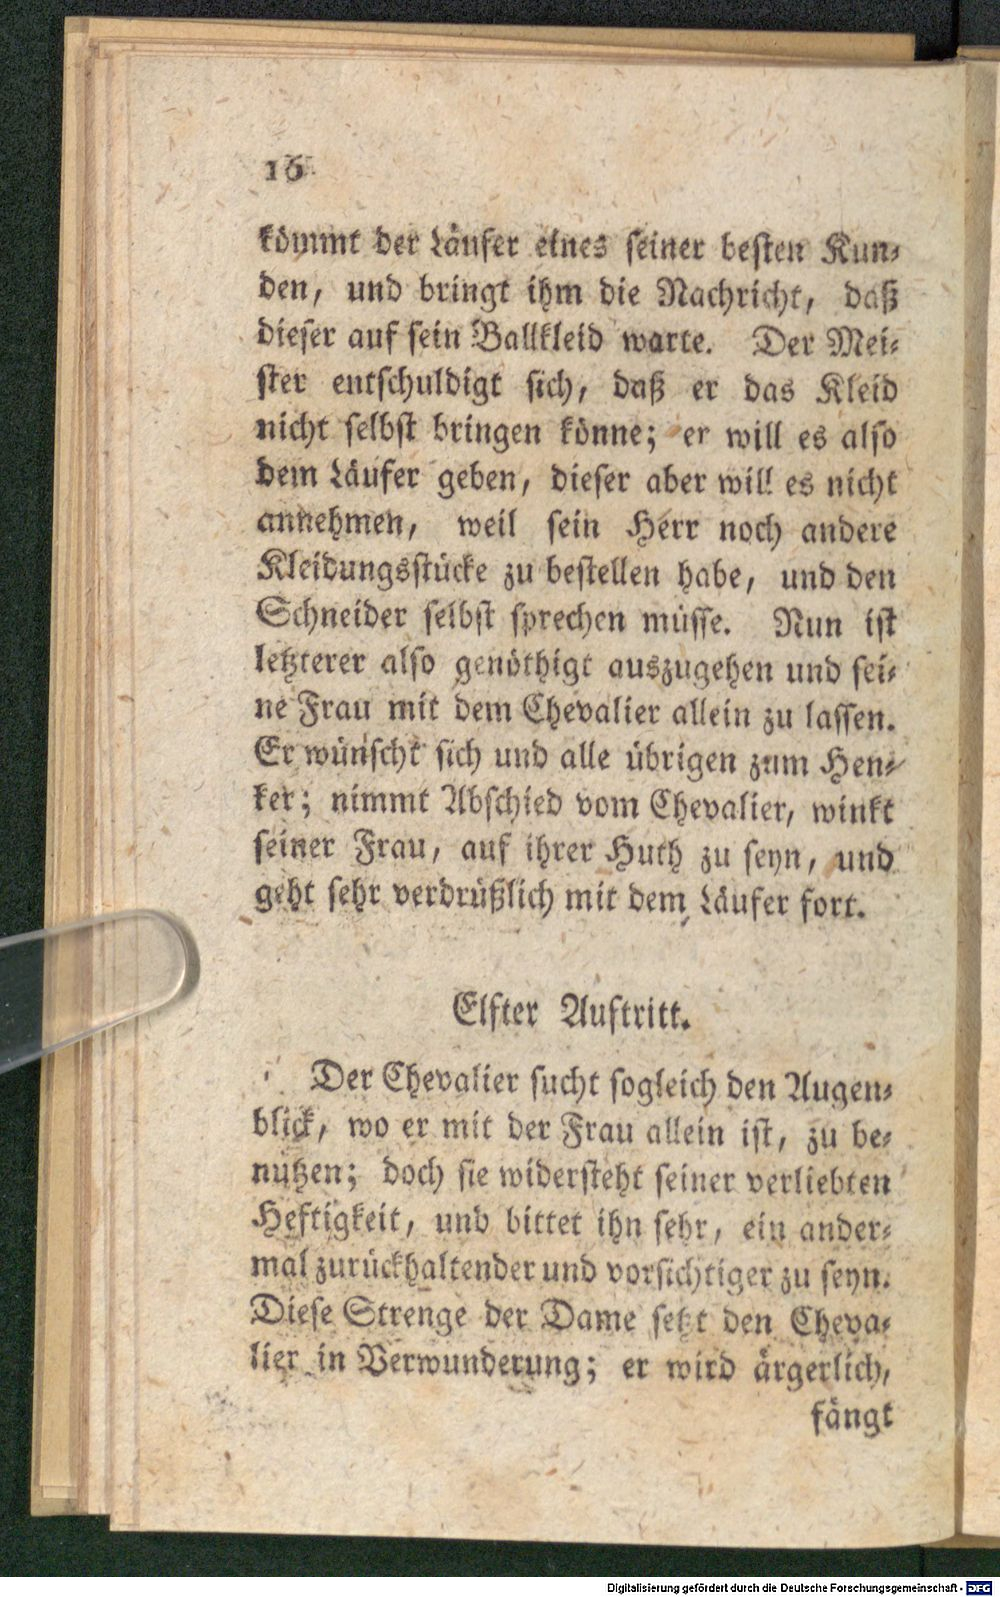 16
kömmt der Läufer eines seiner besten Kun-
den, und bringt ihm die Nachricht, daß
dieser auf sein Ballkleid warte. Der Mei-
ster entschuldigt sich, daß er das Kleid
nicht selbst bringen könne; er will es also
dem Läufer geben, dieser aber will es nicht
annehmen, weil sein Herr noch andere
Kleidungsstücke zu bestellen habe, und den
Schneider selbst sprechen müsse. Nun ist
letzterer also genöthigt auszugehen und sei-
ne Frau mit dem Chevalier allein zu lassen.
Er wünscht sich und alle übrigen zum Hen-
ker; nimmt Abschied vom Chevalier, winkt
seiner Frau, auf ihrer Huth zu seyn, und
geht sehr verdrüßlich mit dem Läufer fort.
Elfter Auftritt.
Der Chevalier sucht sogleich den Augen-
blick, wo er mit der Frau allein ist, zu be-
nützen; doch sie widersteht seiner verliebten
Heftigkeit, und bittet ihn sehr, ein ander-
mal zurückhaltender und vorsichtiger zu seyn.
Diese Strenge der Dame setzt den Cheva-
lier in Verwunderung; er wird ärgerlich,
fängt
Digitalisierung gefördert durch die Deutsche Forschungsgemeinschaft - DFG